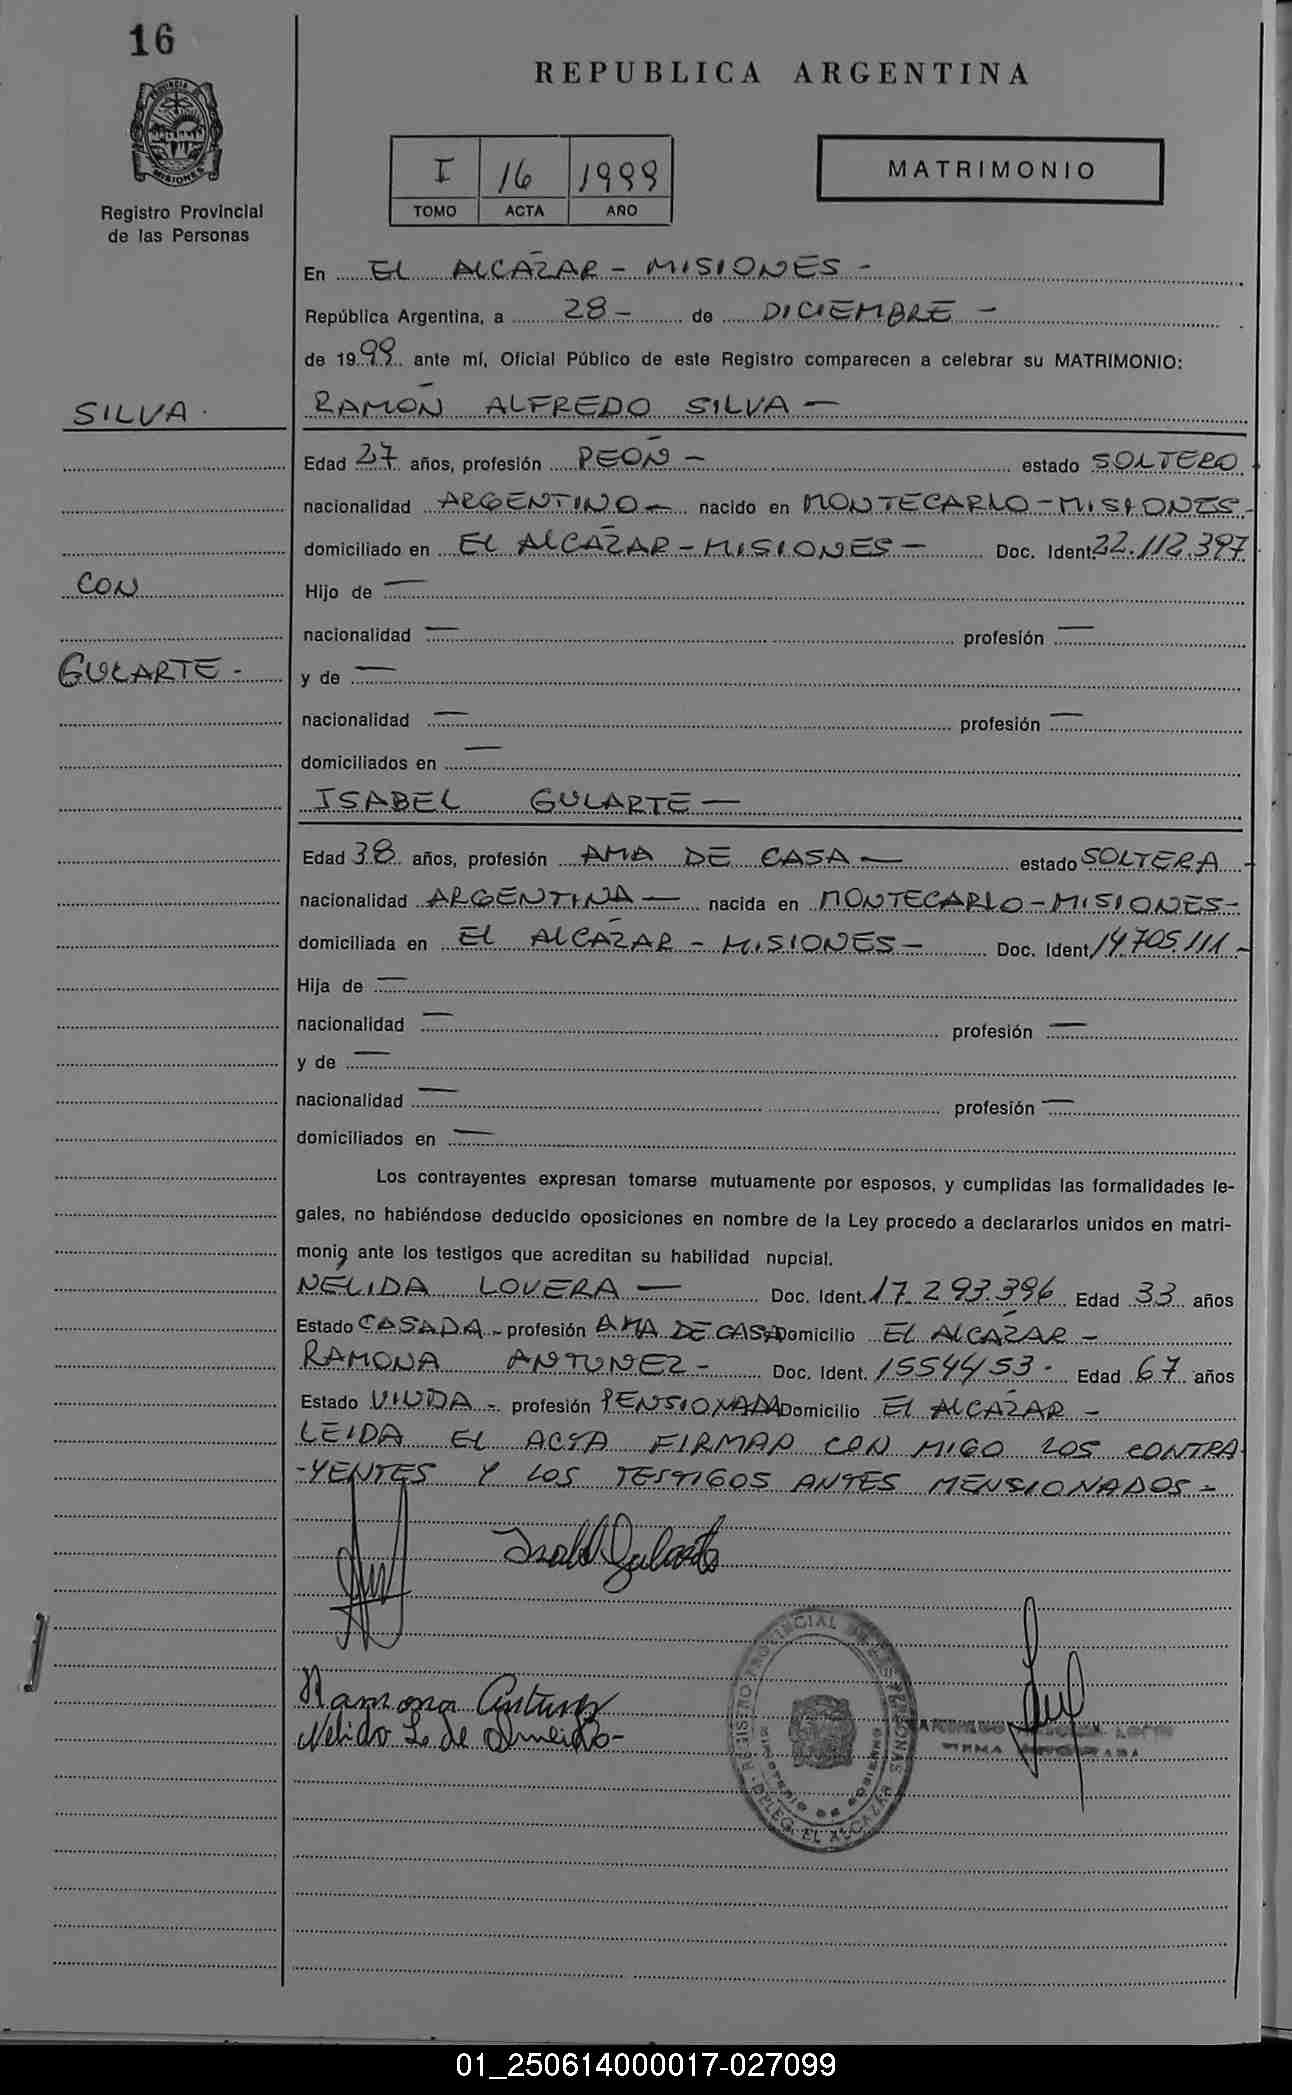 16
REPUBLICA ARGENTINA
PROVINCIA DE MISIONES
Registro Provincial
de las Personas
I 16 1999
TOMO ACTA AÑO
MATRIMONIO
En EL ALCAZAR - MISIONES -
República Argentina, a 28 - de DICIEMBRE -
de 1999 ante mí, Oficial Público de este Registro comparecen a celebrar su MATRIMONIO:
SILVA.
RAMÓN ALFREDO SILVA —
Edad 27 años, profesión PEÓN - estado SOLTERO
nacionalidad ARGENTINO - nacido en MONTECARLO - MISIONES -
domiciliado en EL ALCAZAR - MISIONES - Doc. Ident. 22.112.397
CON
Hijo de —
nacionalidad — profesión —
GULARTE -
y de —
nacionalidad — profesión —
domiciliados en —
ISABEL GULARTE —
Edad 38 años, profesión AMA DE CASA — estado SOLTERA -
nacionalidad ARGENTINA — nacida en MONTECARLO - MISIONES -
domiciliada en EL ALCAZAR - MISIONES - Doc. Ident. 14.705.111 -
Hija de —
nacionalidad — profesión —
y de —
nacionalidad — profesión —
domiciliados en —
Los contrayentes expresan tomarse mutuamente por esposos, y cumplidas las formalidades le-
gales, no habiéndose deducido oposiciones en nombre de la Ley procedo a declararlos unidos en matri-
monio ante los testigos que acreditan su habilidad nupcial.
NELIDA LOVERA — Doc. Ident. 17.293.396 Edad 33 años
Estado CASADA - profesión AMA DE CASA Domicilio EL ALCAZAR -
RAMONA ANTUNEZ - Doc. Ident. 1554453 - Edad 67 años
Estado VIUDA - profesión PENSIONADA Domicilio EL ALCAZAR -
LEIDA EL ACTA FIRMAN CON MIGO LOS CONTRA
-YENTES Y LOS TESTIGOS ANTES MENSIONADOS -
Isabel Gularte
Ramona Antunez
Nelida L. de Almeida -
REGISTRO PROVINCIAL DE LAS PERSONAS
MINISTERIO DE GOBIERNO
DELEG. EL ALCAZAR
FIRMA AUTORIZADA
01_250614000017-027099